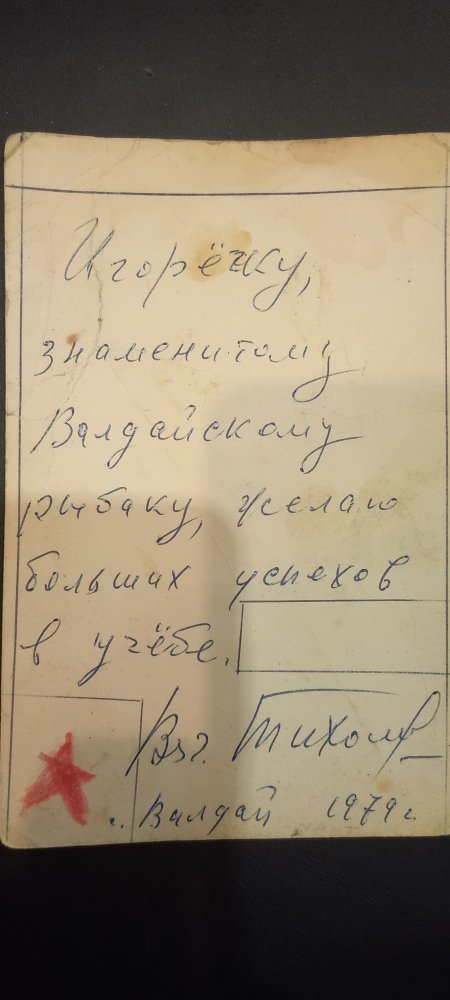 Игорёчку,
знаменитому
Валдайскому
рыбаку, желаю
больших успехов
в учёбе.
Вяч. Тихонов
г. Валдай 1979 г.